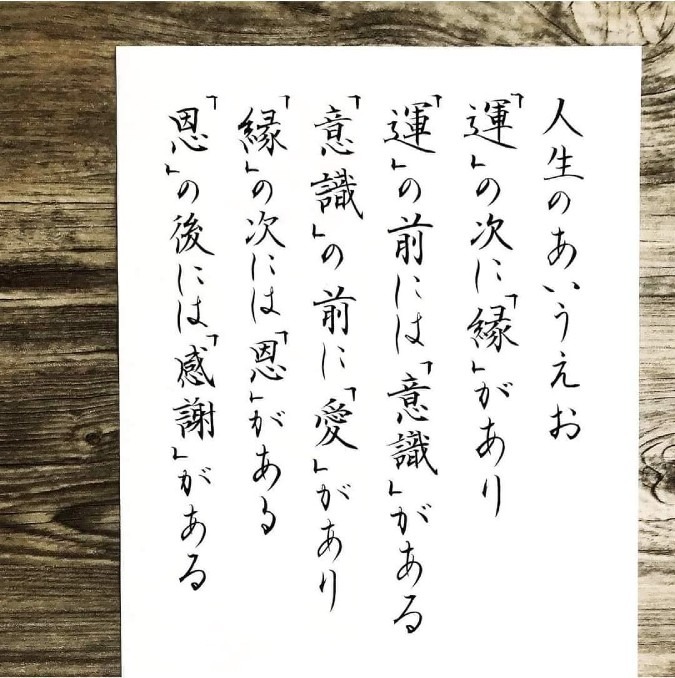 人生のあいうえお
「運」の次に「縁」があり
「運」の前には「意識」がある
「意識」の前に「愛」があり
「縁」の次には「恩」がある
「恩」の後には「感謝」がある